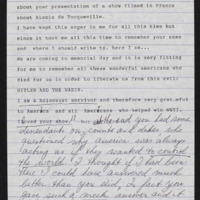 about your presentation of a show filmed in France
about Alexis de Tocqueville.
I have kept this anger in me for all this time but
since it took me all this time to remember your name
and where I should write to, here I am...
We are coming to memorial day and it is very fitting
for me to remember all these wonderful americans who
died for us in order to liberate us from this evil:
HITLER AND THE NAZIS.
I am a holocaust survivor and therefore very grateful
to America and all Americans who helped win WWII.
loved your show!" in at the end you had some
descendants, counts and dukes, who
questioned why America was always
acting as if they wanted to control
the world. I thought if I had been
there I could have answered much
better than you did, in fact you
gave such a meek answer and it